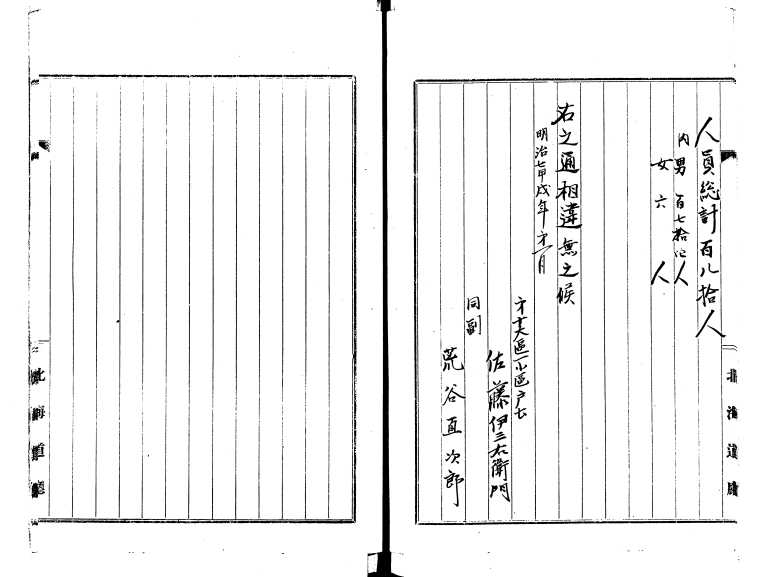 人員総計百八拾人
内男百七拾四人
女六人
右之通相違無之候
明治七甲戌年才一月
才十大區一小區戸長
佐藤伊三右衛門
同副
荒谷直次郎
北海道廳
北海道廳